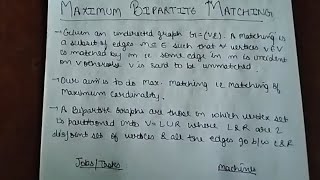 MAXIMUM BIPARTITE MATCHING
→ Given an undirected graph G=(V,E). A matching is
a subset of edges M ⊆ E such that ∀ vertices v ∈ V
is matched by M i.e some edge in M is incident
on v otherwise v is said to be unmatched.
→ Our aim is to do Max. Matching i.e Matching of
Maximum Cardinality.
→ A Bipartite Graphs are those in which vertex set
is partitioned into V = L∪R where L & R are 2
disjoint set of vertices & all the edges go b/w L&R
Jobs/Tasks
Machines